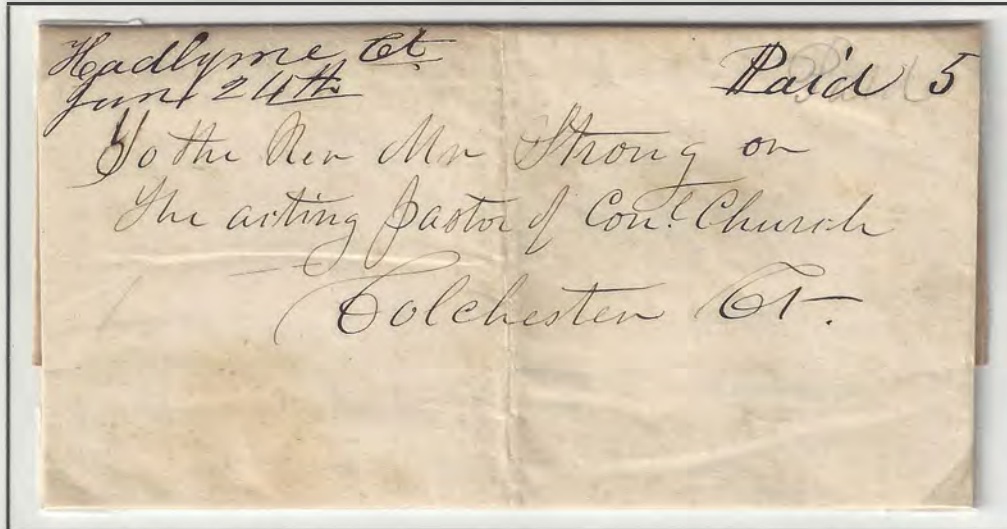 Hadlyme Ct
Jan 24th
Paid 5
To the Rev Mr Strong or
The acting pastor of Con.l Church
Colchester Ct.